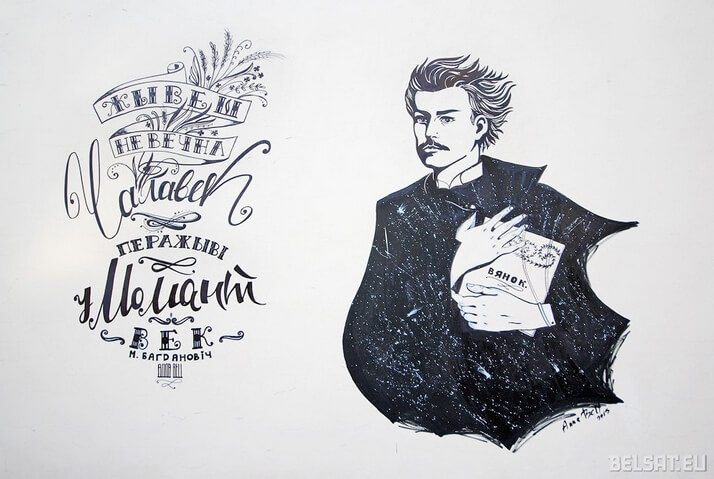 ЖЫВЕШ
НЕ ВЕЧНА
Чалавек
ПЕРАЖЫВІ
у Момант
ВЕК
М. БАГДАНОВІЧ
ВЯНОК
2015
BELSAT.EU